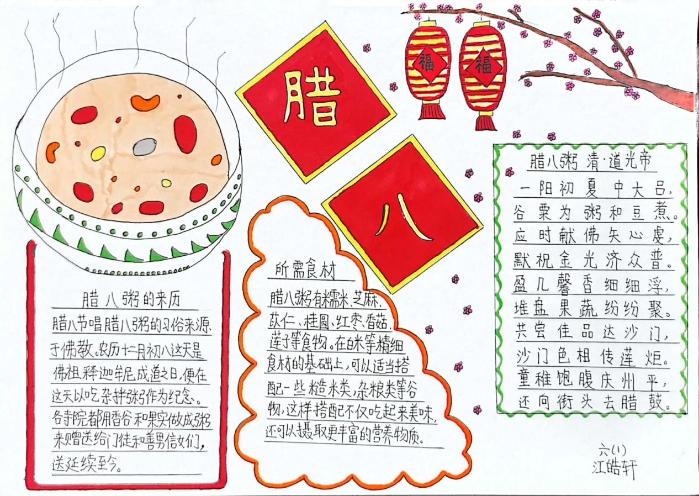 腊
八
福
福
腊八粥的来历
腊八节喝腊八粥的习俗来源
于佛教。农历十二月初八这天是
佛祖释迦牟尼成道之日,便在
这天以吃杂拌粥作为纪念。
各寺院都用香谷和果实做成粥
来赠送给门徒和善男信女们,
送延续至今。
所需食材
腊八粥有糯米、芝麻、
苡仁、桂圆、红枣、香菇、
莲子等食物。在白米等精细
食材的基础上,可以适当搭
配一些糙米类、杂粮类等谷
物,这样搭配不仅吃起来美味,
还可以摄取更丰富的营养物质。
腊八粥 清·道光帝
一阳初夏中大吕,
谷粟为粥和豆煮。
应时献佛矢心虔,
默祝金光济众普。
盈几馨香细细浮,
堆盘果蔬纷纷聚。
共尝佳品达沙门,
沙门色相传莲炬。
童稚饱腹庆州平,
还向街头去腊鼓。
六(1)
江皓轩